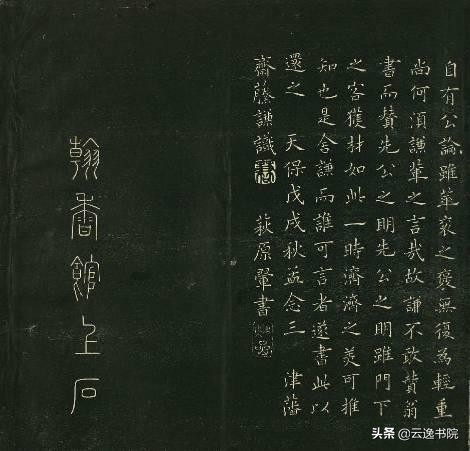 自有公論雖華衮之褒無復為輕重
尚何須謙輩之言哉故謙不敢贊翁
書而贊先公之明先公之明雖門下
之客獲材如此一時濟濟之美可推
知也是舍謙而誰可言者遂書此以
還之 天保戊戌秋孟念三 津藩
齋藤謙識 萩原翬書
翰香館上石
头条 @云逸书院